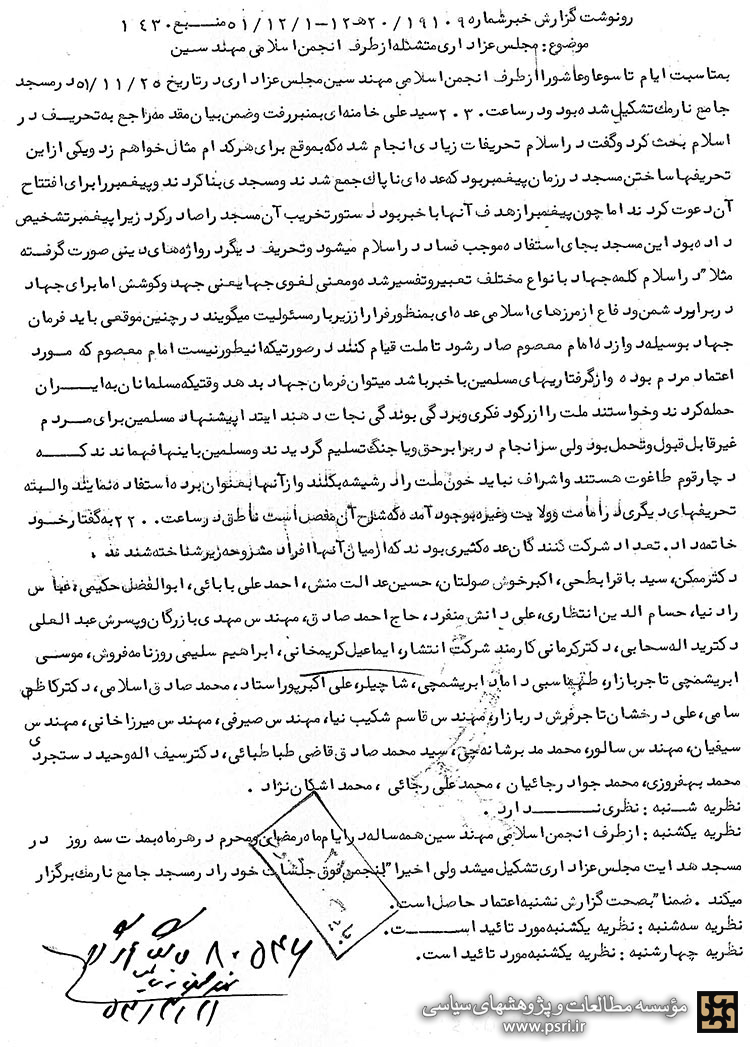 رونوشت گزارش خبر شماره ۱۹۱۰۹/ ۲۰هـ ۱۲-۱/ ۱۲/ ۵۱ منبع ۱۴۳۰
موضوع: مجلس عزاداری متشکله از طرف انجمن اسلامی مهندسین
بمناسبت ایام تاسوعا و عاشورا از طرف انجمن اسلامی مهندسین مجلس عزاداری در تاریخ ۲۵/ ۱۱/ ۵۱ در مسجد
جامع نارمک تشکیل شده بود و در ساعت ۲۰۳۰ سید علی خامنه‌ای بمنبر رفت و ضمن بیان مقدمه راجع به تحریف در
اسلام بحث کرد و گفت در اسلام تحریفات زیادی انجام شده که بموقع برای هر کدام مثال خواهم زد و یکی از این
تحریفها ساختن مسجد در زمان پیغمبر بود که عده‌ای ناپاک جمع شدند و مسجدی بنا کردند و پیغمبر را برای افتتاح
آن دعوت کردند اما چون پیغمبر از هدف آنها با خبر بود دستور تخریب آن مسجد را صادر کرد زیرا پیغمبر تشخیص
داده بود این مسجد بجای استفاده موجب فساد در اسلام میشود و تحریف دیگر در واژه‌های دینی صورت گرفته
مثلا" در اسلام کلمه جهاد با نواع مختلف تعبیر و تفسیر شده و معنی لغوی جها یعنی جهد و کوشش اما برای جهاد
در برابر دشمن و دفاع از مرزهای اسلامی عده‌ای بمنظور فرار از زیر بار مسئولیت میگویند در چنین موقعی باید فرمان
جهاد بوسیله دوازده امام معصوم صادر شود تا ملت قیام کنند در صورتیکه اینطور نیست امام معصوم که مورد
اعتماد مردم بوده و از گرفتاریهای مسلمین با خبر باشد میتوان فرمان جهاد بدهد وقتیکه مسلمانان به ایران
حمله کردند و خواستند ملت را از رکود فکری و بردگی بوندگی نجات دهند ابتدا پیشنهاد مسلمین برای مردم
غیر قابل قبول و تحمل بود ولی سرانجام در برابر حق و یا جنگ تسلیم گردیدند و مسلمین باینها فهماندند که
دچار قوم طاغوت هستند و اشراف نباید خون ملت را در شیشه بکنند و از آنها بعنوان برده استفاده نمایند والبته
تحریفهای دیگری در امامت و ولایت و غیره بوجود آمده که شرح آن مفصل است ناطق در ساعت ۲۲۰۰ به گفتار خود
خاتمه داد. تعداد شرکت کنندگان عده کثیری بودند که از میان آنها افراد مشروحه زیر شناخته شدند.
دکتر ممکن، سید باقر ابطحی، اکبر خوش صولتان، حسین عدالت منش، احمد علی بابائی، ابوالفضل حکیمی، عباس
رادنیا، حسام الدین انتظاری، علی دانش منفرد، حاج احمد صادق، مهندس مهدی بازرگان و پسرش عبدالعلی
دکتر یداله سحابی، دکتر کرمانی کارمند شرکت انتشار، ایماعیل کریمخانی، ابراهیم سلیمی روزنامه فروش، موسی
ابریشمچی تاجر بازار، طهماسبی داماد ابریشمچی، شاچیلر، علی اکبر پور استاد، محمد صادق اسلامی، دکتر کاظم
سامی، علی درخشان تاجر فرش در بازار، مهندس قاسم شکیب نیا، مهندس صیرفی، مهندس میرزاخانی، مهندس
سیفیان، مهندس سالور، محمد مدبر شانه چی، سید محمد صادق قاضی طباطبائی، دکتر سیف اله وحید دستجردی
محمد بهفروزی، محمد جواد رجائیان، محمد علی رجائی، محمد اشکان نژاد.
نظریه شنبه: نظری ندارد.
نظریه یکشنبه: از طرف انجمن اسلامی مهندسین همه ساله در ایام ماه رمضان و محرم در هر ماه بمدت سه روز در
مسجد هدایت مجلس عزاداری تشکیل میشد ولی اخیرا" انجمن فوق جلسات خود را در مسجد جامع نارمک برگزار
میکند. ضمنا" بصحت گزارش شنبه اعتماد حاصل است.
نظریه سه شنبه: نظریه یکشنبه مورد تائید است.
نظریه چهارشنبه: نظریه یکشنبه مورد تائید است.
۸۰۵۴۶
مؤسسه مطالعات و پژوهشهای سیاسی
www.psri.ir